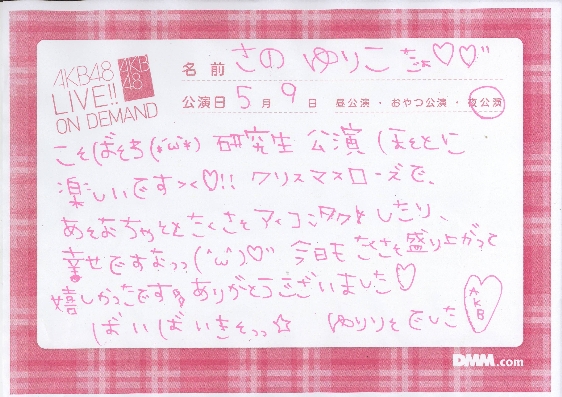 AKB48
LIVE!!
ON DEMAND
AKB
48
名前 さの ゆりこ だよ♡♡"
公演日 5月 9日 昼公演・おやつ公演・夜公演
こそばそち(*'ω'*) 研究生 公演 ほそとに
楽しいです><♡!! クリスマスローズで、
あそなちゃそとたくさそアイコンタクトしたり、
幸せですなっっ(^ω^)♡" 今日もたくさそ盛り上がって
嬉しかったです ありがとうございました♡
ばいばいきそっっ☆ ゆりりそでした
AKB
DMM.com